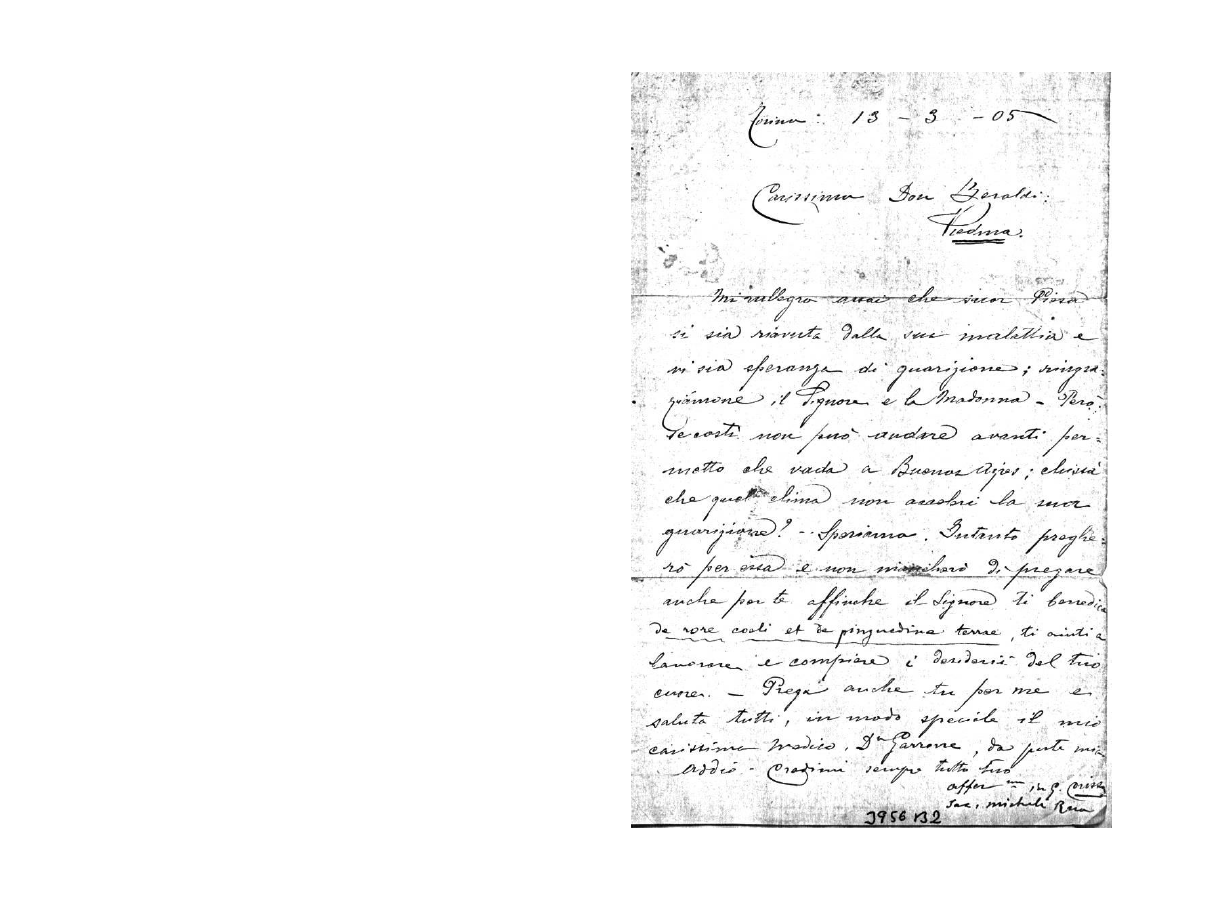 Torino: 13 - 3 - 05
Carissimo Don Beraldi:
Viedma.
Mi rallegro assai che suor Piera
si sia riavuta dalla sua malattia e
vi sia speranza di guarigione; ringra-
ziamone il Signore e la Madonna - Però,
se costì non può andare avanti per-
metto che vada a Buenos Ajres; chissà
che quel clima non acceleri la sua
guarigione? - Speriamo. Intanto preghe-
rò per essa e non mancherò di pregare
anche per te affinche il Signore ti benedica
de rore coeli et de pinguedine terrae, ti aiuti a
lavorare e compiere i desiderii del tuo
cuore. - Prega anche tu per me e
saluta tutti, in modo speciale il mio
carissimo medico, Dn Garrone, da parte mia
Addio - Credimi sempre tutto tuo
affer mo in G.
Sac. Michele Rua
J956 B2